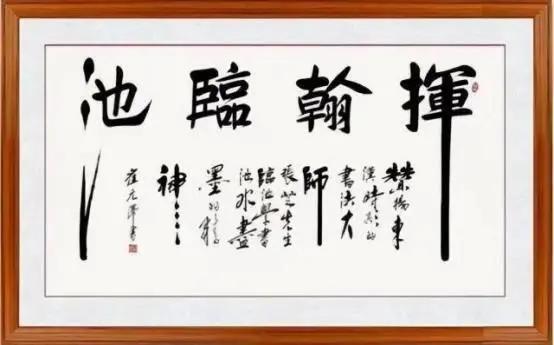 揮翰臨池
贊揚東
漢時期的
書法大
師
張芝先生
臨池學書
池水盡
墨的
神
書